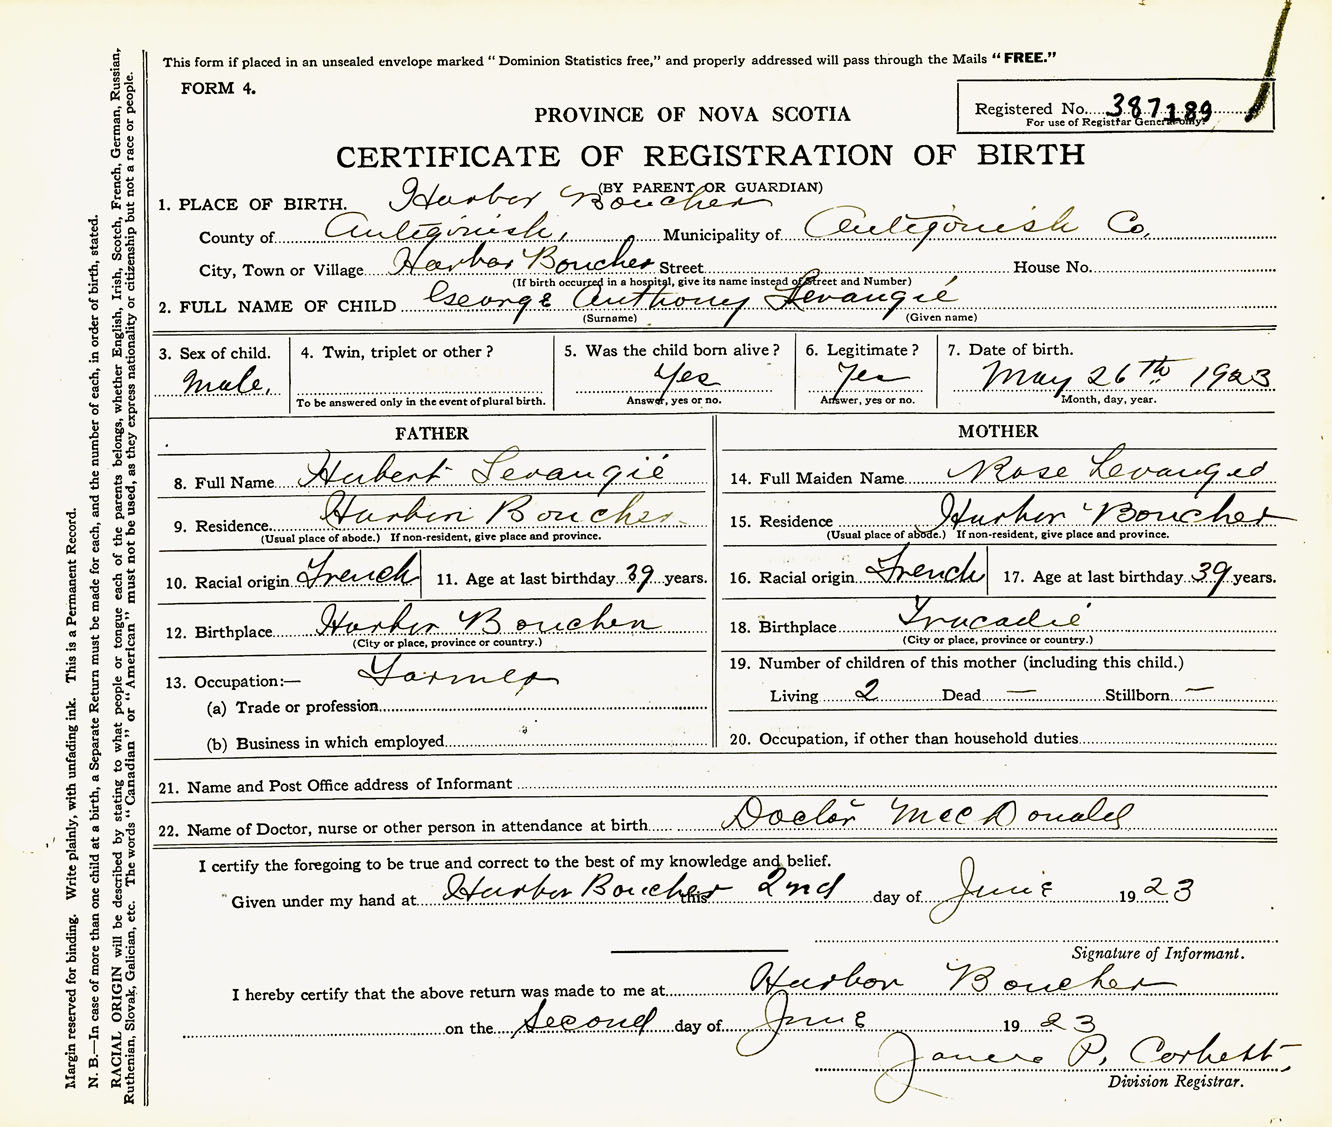 This form if placed in an unsealed envelope marked "Dominion Statistics free," and properly addressed will pass through the Mails "FREE."
FORM 4.
Registered No. 387189
For use of Registrar General only.
PROVINCE OF NOVA SCOTIA
CERTIFICATE OF REGISTRATION OF BIRTH
(BY PARENT OR GUARDIAN)
1. PLACE OF BIRTH. Harbor Boucher
County of Antigonish, Municipality of Antigonish Co.
City, Town or Village Harbor Boucher Street House No.
(If birth occurred in a hospital, give its name instead of Street and Number)
2. FULL NAME OF CHILD George Anthony Levangié
(Surname) (Given name)
3. Sex of child. 4. Twin, triplet or other? 5. Was the child born alive? 6. Legitimate? 7. Date of birth.
Male, Yes Yes May 26th 1923
To be answered only in the event of plural birth. Answer, yes or no. Answer, yes or no. Month, day, year.
FATHER
8. Full Name Hubert Levangié
9. Residence Harbor Boucher
(Usual place of abode.) If non-resident, give place and province.
10. Racial origin French 11. Age at last birthday 39 years.
12. Birthplace Harbor Boucher
(City or place, province or country.)
13. Occupation:— Farmer
(a) Trade or profession
(b) Business in which employed
MOTHER
14. Full Maiden Name Rose Levangié
15. Residence Harbor Boucher
(Usual place of abode.) If non-resident, give place and province.
16. Racial origin French 17. Age at last birthday 39 years.
18. Birthplace Tracadié
(City or place, province or country.)
19. Number of children of this mother (including this child.)
Living 2 Dead — Stillborn —
20. Occupation, if other than household duties
21. Name and Post Office address of Informant
22. Name of Doctor, nurse or other person in attendance at birth Doctor McDonald
I certify the foregoing to be true and correct to the best of my knowledge and belief.
Given under my hand at Harbor Boucher this 2nd day of June 1923
Signature of Informant.
I hereby certify that the above return was made to me at Harbor Boucher
on the Second day of June 1923
James P. Corbett
Division Registrar.
Margin reserved for binding. Write plainly, with unfading ink. This is a Permanent Record.
N. B.—In case of more than one child at a birth, a Separate Return must be made for each, and the number of each, in order of birth, stated.
RACIAL ORIGIN will be described by stating to what people or tongue each of the parents belongs, whether English, Irish, Scotch, French, German, Russian,
Ruthenian, Slovak, Galician, etc. The words "Canadian" or "American" must not be used, as they express nationality or citizenship but not a race or people.